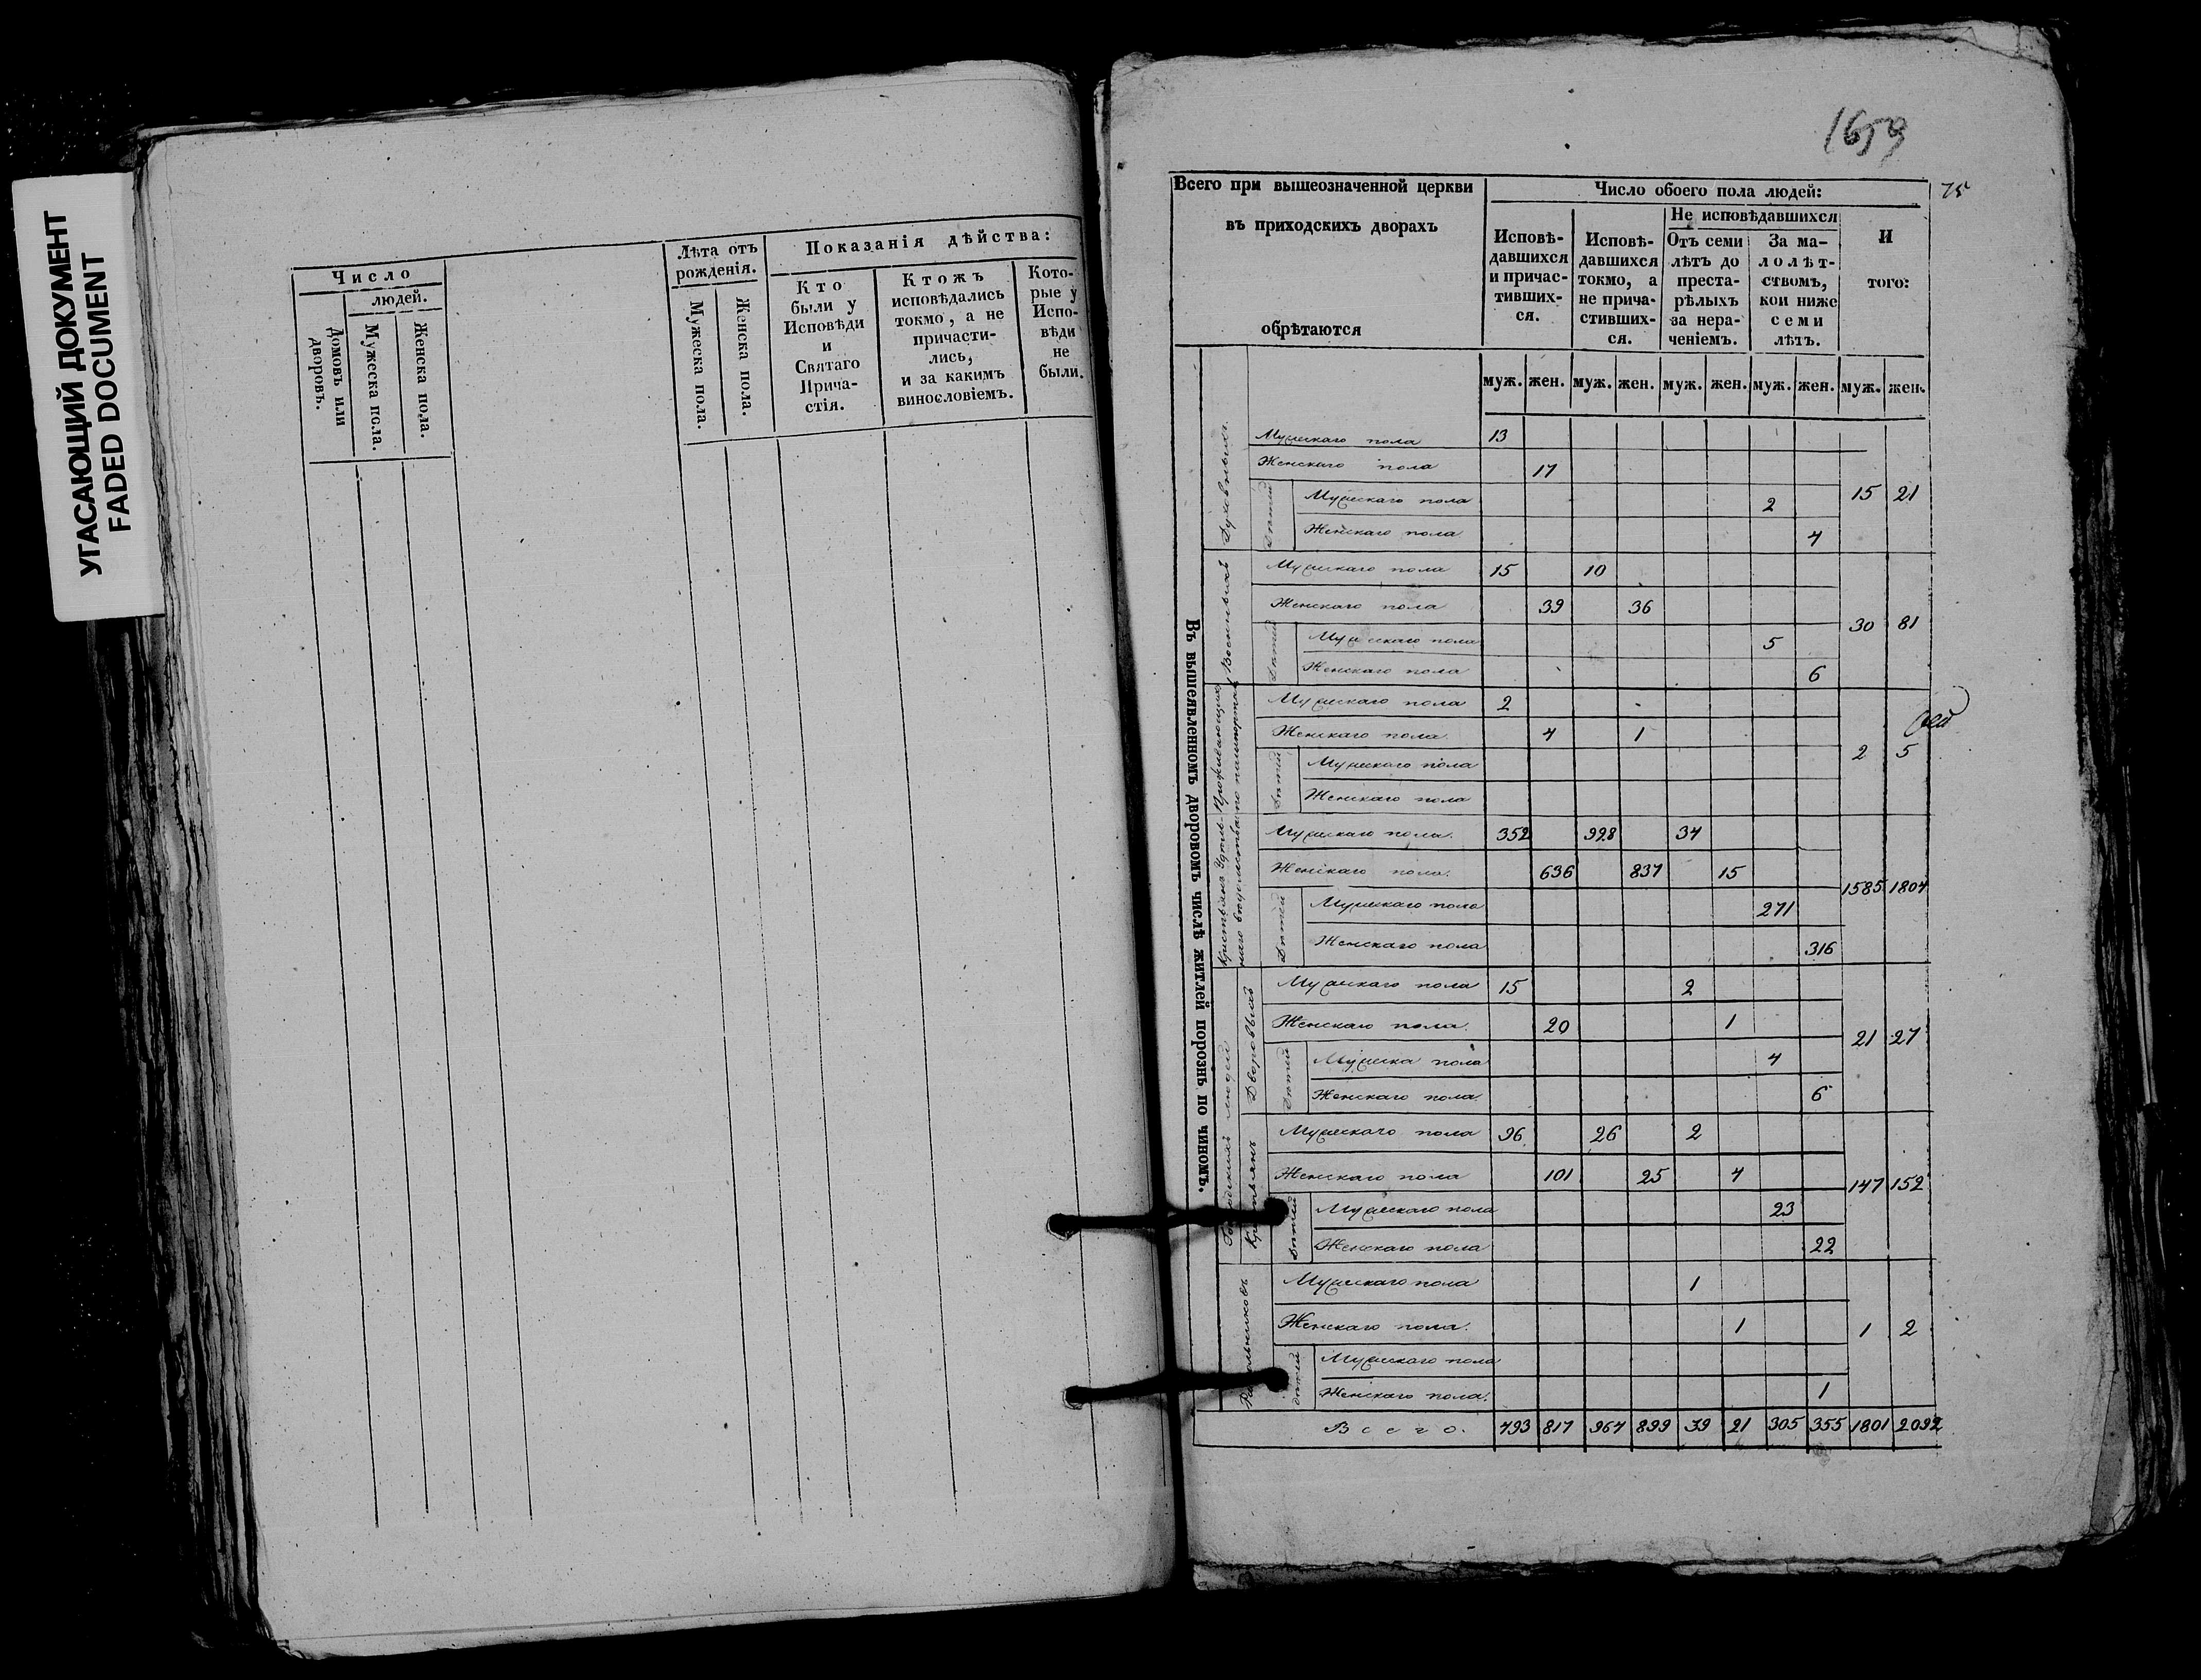 УГАСАЮЩИЙ ДОКУМЕНТ
FADED DOCUMENT
Число
людей.
Домовъ или дворовъ.
Мужеска пола.
Женска пола.
Лѣта отъ
рожденія.
Мужеска пола.
Женска пола.
Показанія дѣйства:
Кто
были у
Исповѣди
и
Святаго
Прича-
стія.
Ктожъ
исповѣдались
токмо, а не
причасти-
лись,
и за какимъ
винословіемъ.
Кото-
рые у
Испо-
вѣди
не
были.
1659
75
Всего при вышеозначенной церкви
въ приходскихъ дворахъ
обрѣтаются
Число обоего пола людей:
Исповѣ-
давшихся
и причас-
тивших-
ся.
Исповѣ-
давшихся
токмо, а
не прича-
стивших-
ся.
Не исповѣдавшихся
Отъ семи
лѣтъ до
преста-
рѣлыхъ
за нера-
ченіемъ.
За ма-
лолѣт-
ствомъ,
кои ниже
семи
лѣтъ.
И
того:
муж. жен. муж. жен. муж. жен. муж. жен. муж. жен.
Въ вышеявленномъ дворовомъ числѣ жителей порознь по чиномъ.
Духовныхъ
Мужескаго пола 13
Женскаго пола 17
Дѣтей
Мужескаго пола 2
15 21
Женскаго пола 4
Военныхъ
Мужескаго пола 15 10
Женскаго пола 39 36
30 81
Дѣтей
Мужескаго пола 5
Женскаго пола 6
Проживающихъ по пашпортамъ
Мужескаго пола 2
Женскаго пола 4 1
2 5
Дѣтей
Мужескаго пола
Женскаго пола
Крестьянъ Удѣльнаго вѣдомства
Мужескаго пола 352 928 34
Женскаго пола 636 837 15
1585 1804
Дѣтей
Мужескаго пола 271
Женскаго пола 316
людей
Дворовыхъ
Мужескаго пола 15 2
Женскаго пола 20 1
21 27
Дѣтей
Мужеска пола 4
Женскаго пола 6
Крестьянъ
Мужескаго пола 96 26 2
Женскаго пола 101 25 4
147 152
Дѣтей
Мужескаго пола 23
Женскаго пола 22
Мужескаго пола 1
Женскаго пола 1
1 2
Дѣтей
Мужескаго пола
Женскаго пола 1
Всего. 493 817 964 899 39 21 305 355 1801 2092